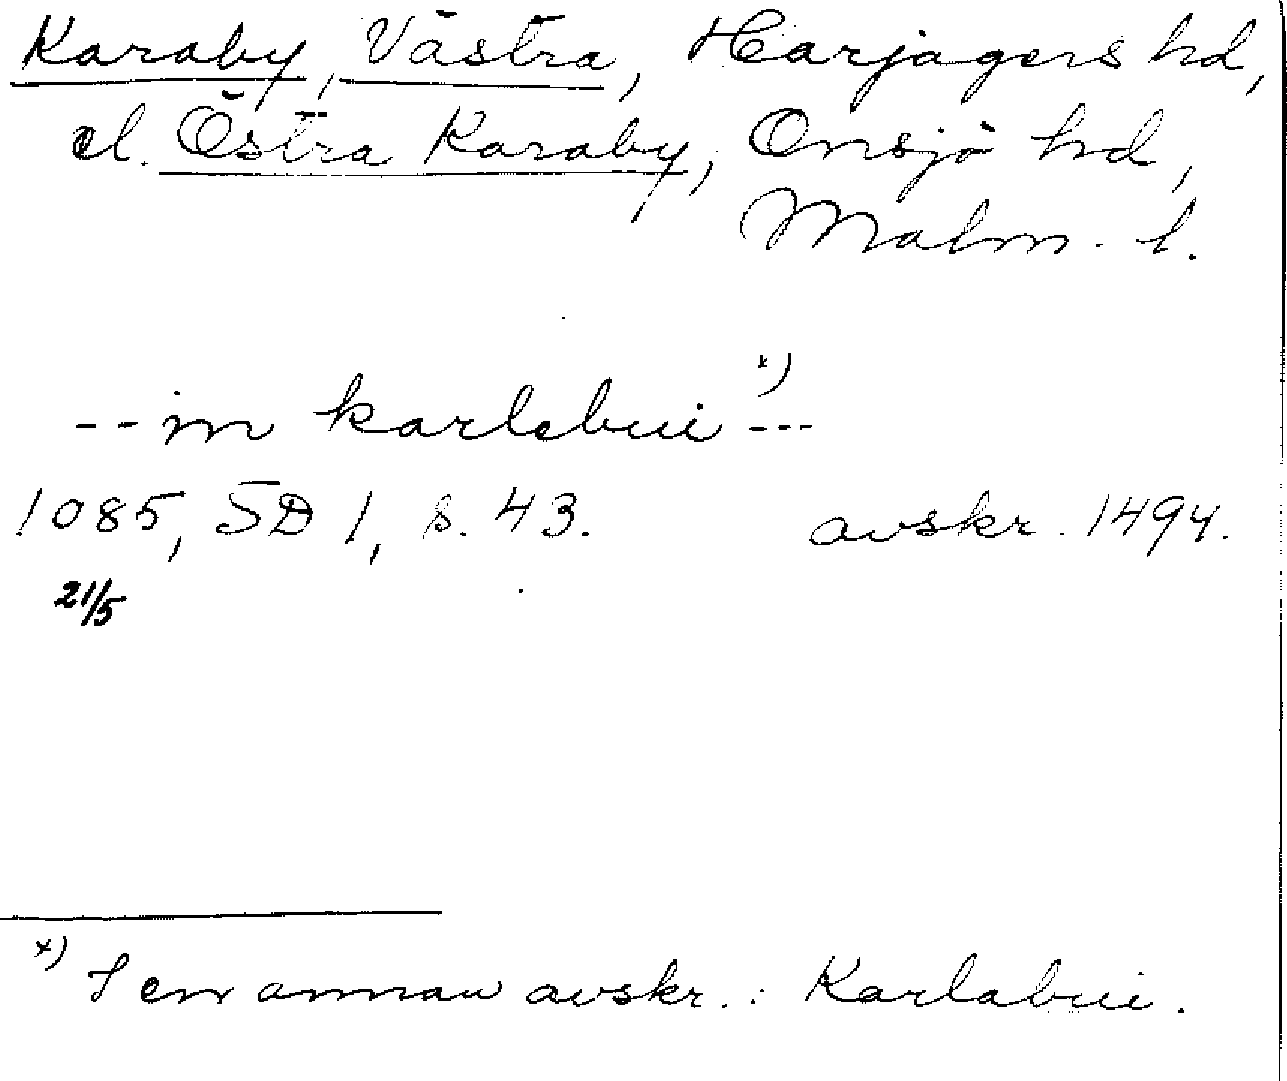 Karaby, Västra, Harjagers hd,
el. Östra Karaby, Onsjö hd,
Malm. l.
--in karlebui x) ---
1085, SD 1, s. 43. avskr. 1494.
21/5
x) I en annan avskr.: Karlabui.